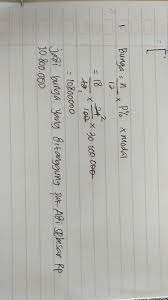 1. Bunga = n/12 x P% x modal
= 18/12 x 24/100 x 30.000.000
= 10800000
jadi bunga yang ditanggung pak Adi sebesar Rp
10.800.000